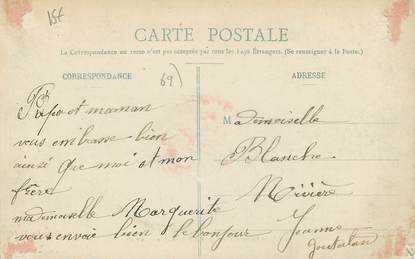 15t
CARTE POSTALE
La Correspondance au recto n'est pas acceptée par tous les Pays Étrangers. (Se renseigner à la Poste.)
CORRESPONDANCE
69)
ADRESSE
Papa et maman
vous embrasse bien
ainsi que moi et mon
frère
mademoiselle Marguerite
vous envoie bien le bonjour
Mademoiselle
Blanche
Rivière
Jeanne